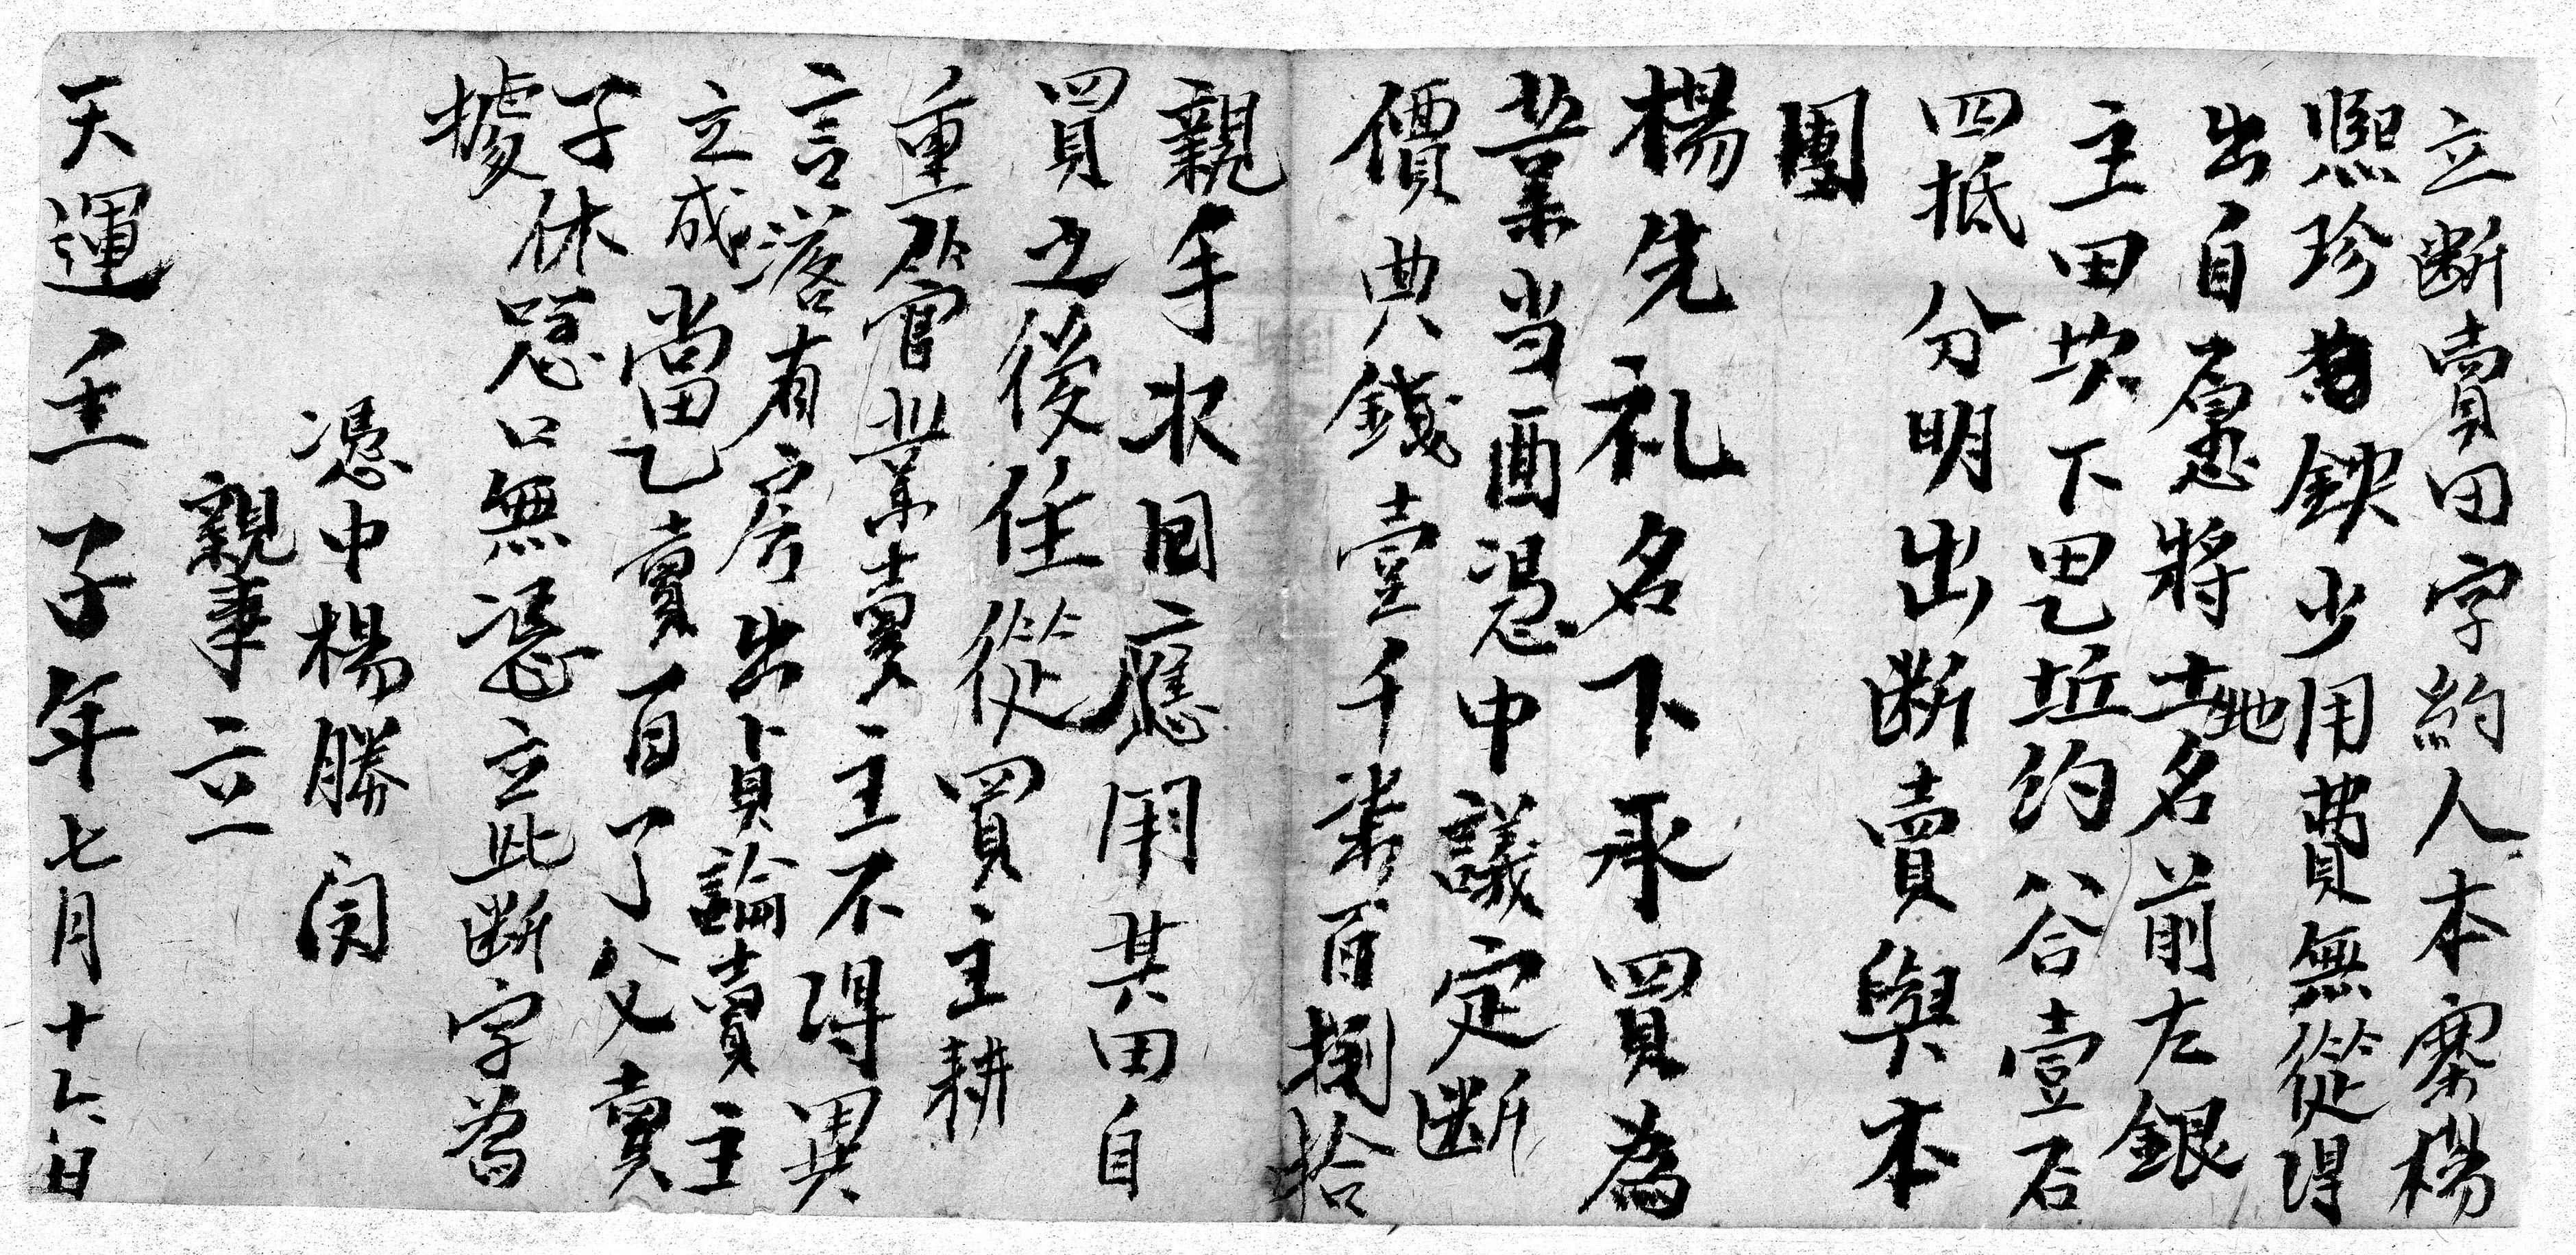 立斷賣田字約人本寨楊
熙珍為缺少用費無從得
出自愿將土地名前左銀
主田坎下田乙坵約谷壹石
四抵分明出断賣與本
團
楊先礼名下承買為
業当面憑中議定断
價典錢壹千柒百捌拾
親手收囬應用其田自
買之後任從買主耕
重啓管業賣主不得異
言落有房出貞論賣主
立成當乙賣百了父賣
子休恐口無憑立此断字為
據
憑中楊勝閏
親筆立
天運壬子年七月十六日